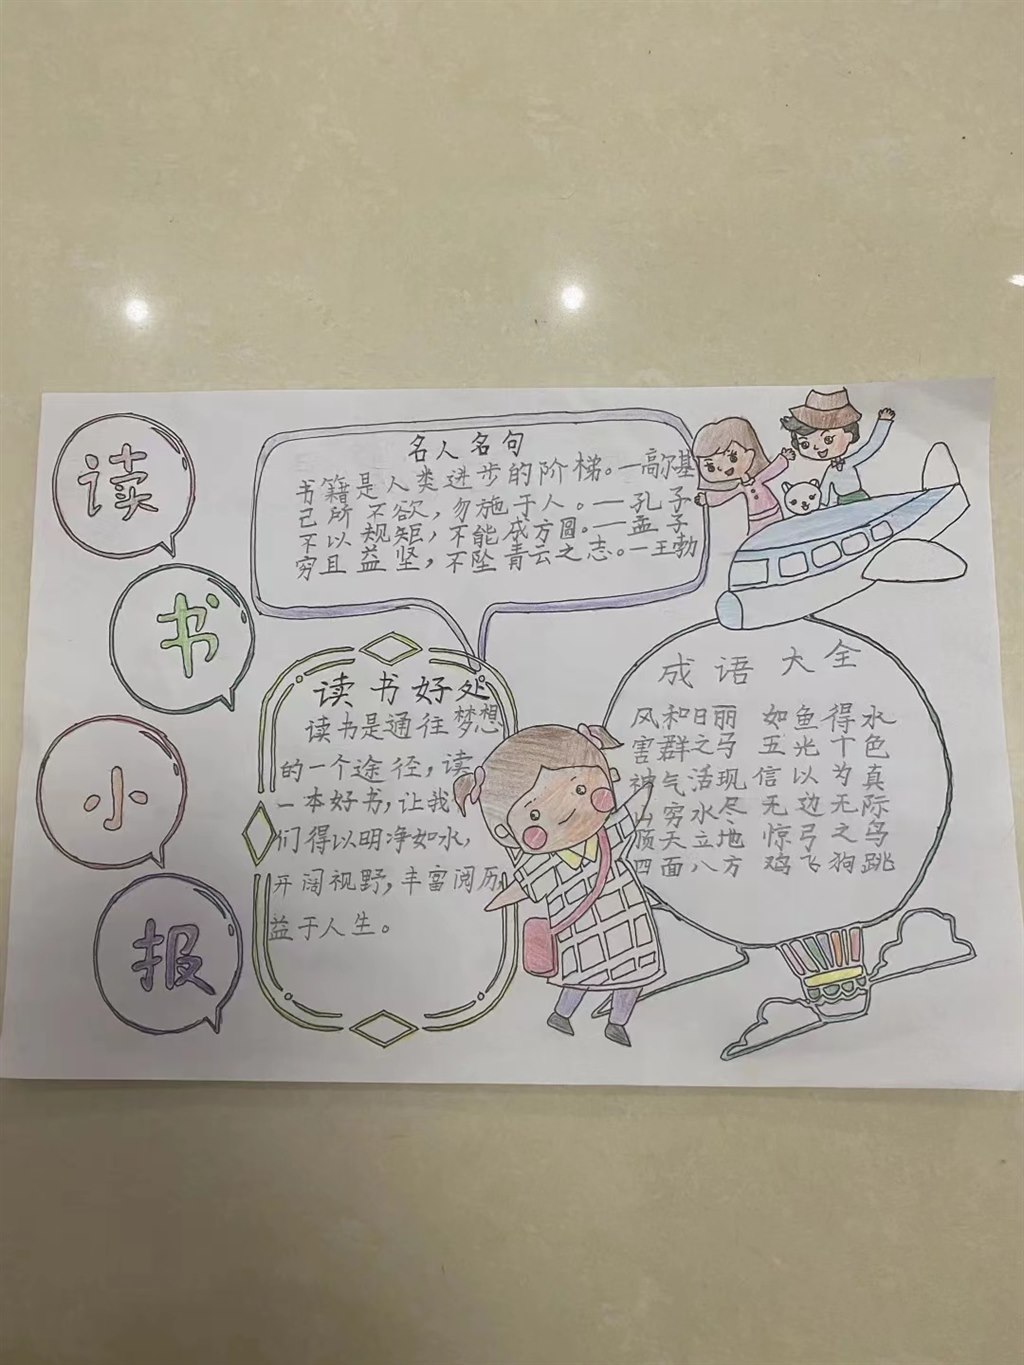 读
书
小
报
名人名句
书籍是人类进步的阶梯。—高尔基
己所不欲，勿施于人。—孔子
不以规矩，不能成方圆。—孟子
穷且益坚，不坠青云之志。—王勃
读书好处
读书是通往梦想
的一个途径，读
一本好书，让我
们得以明净如水，
开阔视野，丰富阅历，
益于人生。
成语大全
风和日丽 如鱼得水
害群之马 五光十色
神气活现 信以为真
山穷水尽 无边无际
顶天立地 惊弓之鸟
四面八方 鸡飞狗跳